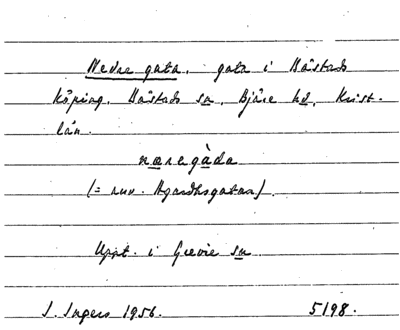 Nedre gata, gata i Båstads
köping, Båstads sn, Bjäre hd, Krist.
län.
næregàda
(= nuv. Agardhsgatan).
Uppt. i Grevie sn
I. Ingers 1956. 5198.